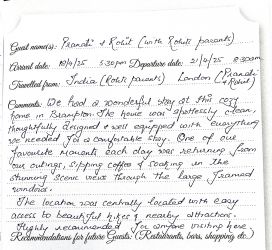 Guest name(s): Pranali & Rohit (with Rohit's parents)
Arrival date: 18/4/25 5:30pm Departure date: 21/4/25 8:30am
Travelled from: India (Rohit's parents) London (Pranali & Rohit)
Comments: We had a wonderful stay at this cosy
home in Brampton. The house was spotlessly clean,
thoughtfully designed & well equipped with everything
we needed for a comfortable stay. One of our
favourite moments each day was returning from
our outings, sipping coffee & soaking in the
stunning scenic views through the large framed
windows.
The location was centrally located with easy
access to beautiful hikes & nearby attractions.
Highly recommended for anyone visiting here.
Recommendations for future Guests: (Restaurants, bars, shopping etc.)